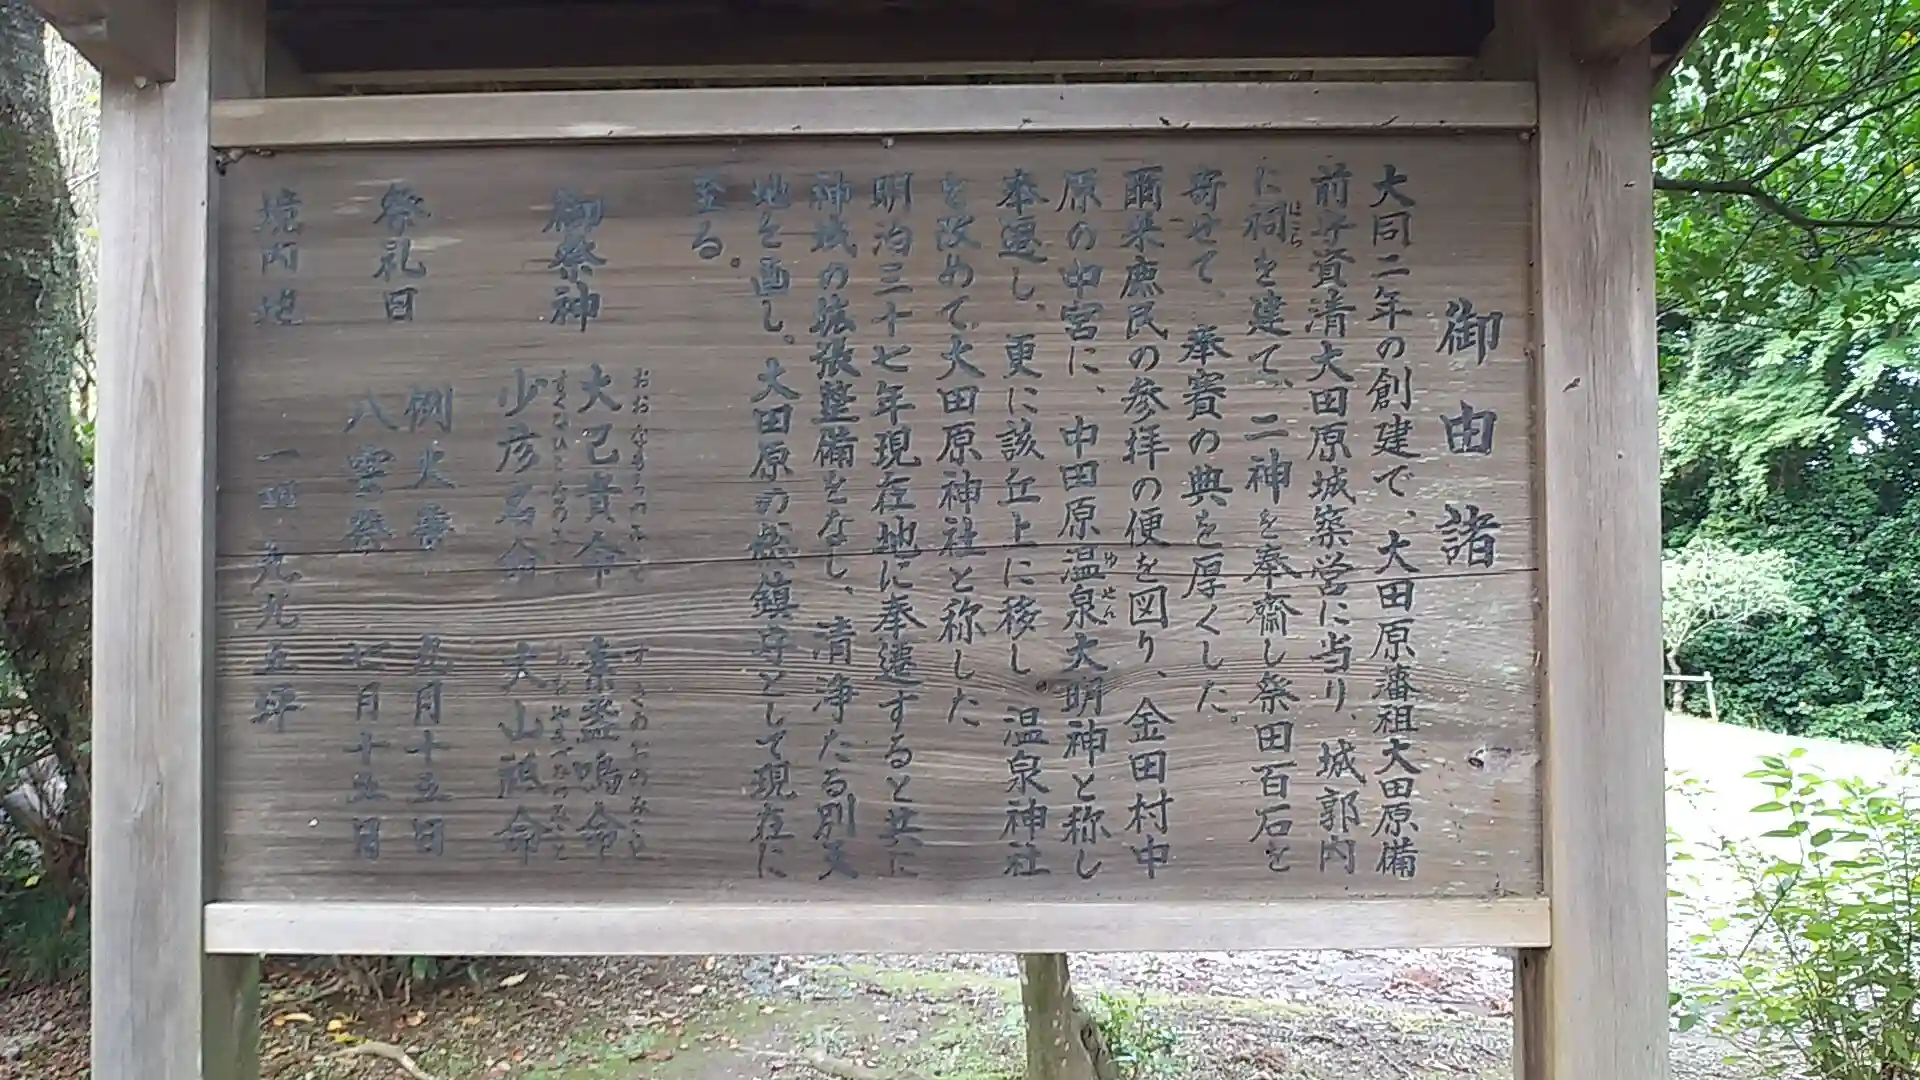 御由諸
大同二年の創建で、大田原藩祖大田原備
前守資清大田原城築営に当り、城郭内
に祠を建て、二神を奉齋し祭田百石を
ほこら
寄せて、奉賽の典を厚くした。
爾来庶民の参拝の便を図り、金田村中
原の中宮に、中田原温泉大明神と称し
ゆせん
奉遷し、更に該丘上に移し。温泉神社
を改めて大田原神社と称した
明治三十七年現在地に奉遷すると共に
神域の拡張整備をなし、清浄たる別天
地を画し、大田原の総鎮守として現在に
至る。
御祭神 大己貴命 素盞鳴命
すさのおのみこと
少彦名命 大山祗命
祭礼日 例大祭 五月十五日
八雲祭 七月十五日
境内地 一四、九九五坪